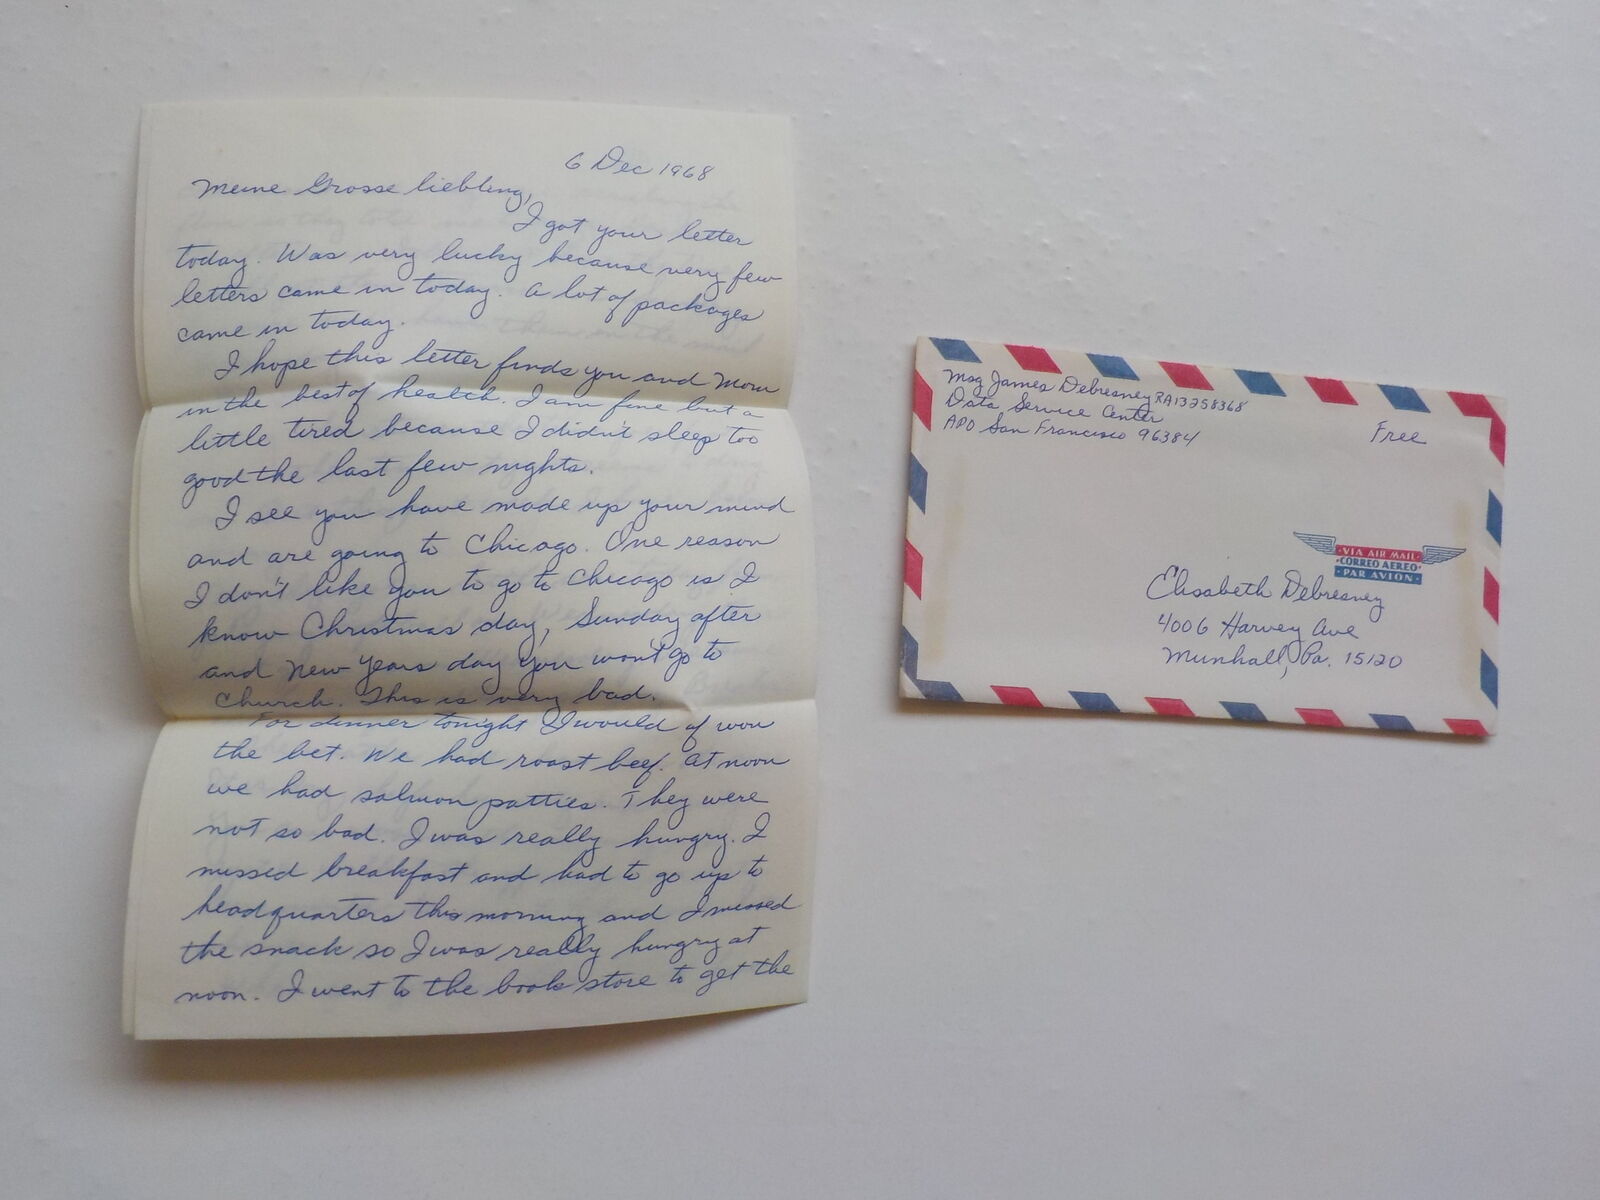 6 Dec 1968
Meine Grosse liebling,
I got your letter
today. Was very lucky because very few
letters came in today. A lot of packages
came in today.
I hope this letter finds you and Mom
in the best of health. I am fine but a
little tired because I didn't sleep too
good the last few nights.
I see you have made up your mind
and are going to Chicago. One reason
I don't like you to go to Chicago is I
know Christmas day, Sunday after
and New Years day you won't go to
Church. This is very bad.
For dinner tonight I would of won
the bet. We had roast beef. At noon
we had salmon patties. They were
not so bad. I was really hungry. I
missed breakfast and had to go up to
headquarters this morning and I missed
the snack so I was really hungry at
noon. I went to the book store to get the
Msg James Debresney RA13258368
Data Service Center
APO San Francisco 96384
Free
VIA AIR MAIL
CORREO AEREO
PAR AVION
Elisabeth Debresney
4006 Harvey Ave
Munhall, Pa. 15120